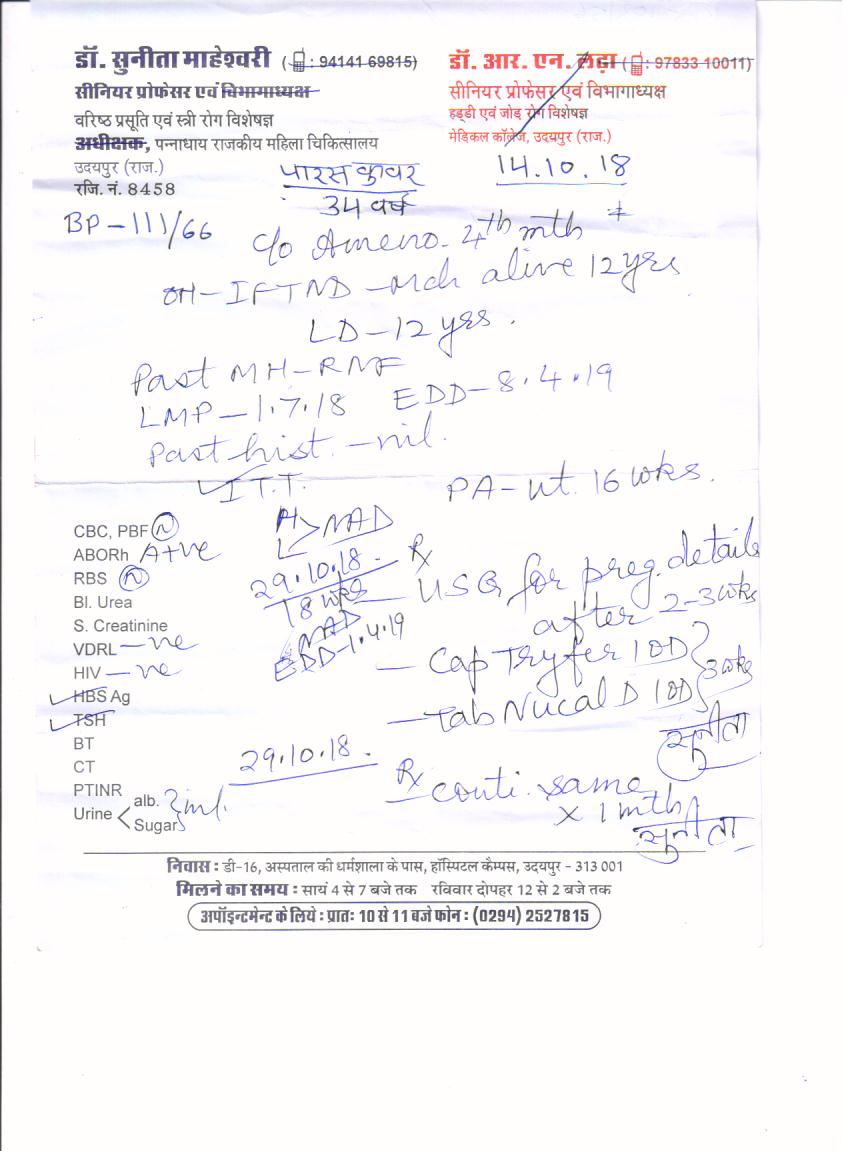 डॉ. सुनीता माहेश्वरी (: 94141 69815)
सीनियर प्रोफेसर एवं विभागाध्यक्ष
वरिष्ठ प्रसूति एवं स्त्री रोग विशेषज्ञ
अधीक्षक, पन्नाधाय राजकीय महिला चिकित्सालय
उदयपुर (राज.)
रजि. नं. 8458
डॉ. आर. एन. लढ़ा (: 97833 10011)
सीनियर प्रोफेसर एवं विभागाध्यक्ष
हड्डी एवं जोड़ रोग विशेषज्ञ
मेडिकल कॉलेज, उदयपुर (राज.)
पारस कुवर
34 वर्ष
14.10.18
BP - 111/66
c/o Ameno. 4th mth +
OH - IFTND - Mch alive 12 yrs
LD - 12 yrs.
Past MH - RMF
LMP - 1.7.18 EDD - 8.4.19
Past hist. - nil.
I T.T.
PA - ut. 16 wks.
CBC, PBF N
ABORh A+ve
RBS N
Bl. Urea
S. Creatinine
VDRL - ve
HIV - ve
HBS Ag
TSH
BT
CT
PTINR
Urine < alb.
Sugar } nil.
H
L > NAD
29.10.18.
18 wks
NAD
EDD - 1.4.19
Rx
- USG for preg. details
after 2-3 wks
- Cap Tryfer 1 OD
- Tab Nucal D 1 OD } 3 wks
सुनीता
29.10.18.
Rx
conti. same
x 1 mth
सुनीता
निवास : डी-16, अस्पताल की धर्मशाला के पास, हॉस्पिटल कैम्पस, उदयपुर - 313 001
मिलने का समय : सायं 4 से 7 बजे तक रविवार दोपहर 12 से 2 बजे तक
अपॉइन्टमेन्ट के लिये : प्रातः 10 से 11 बजे फोन : (0294) 2527815